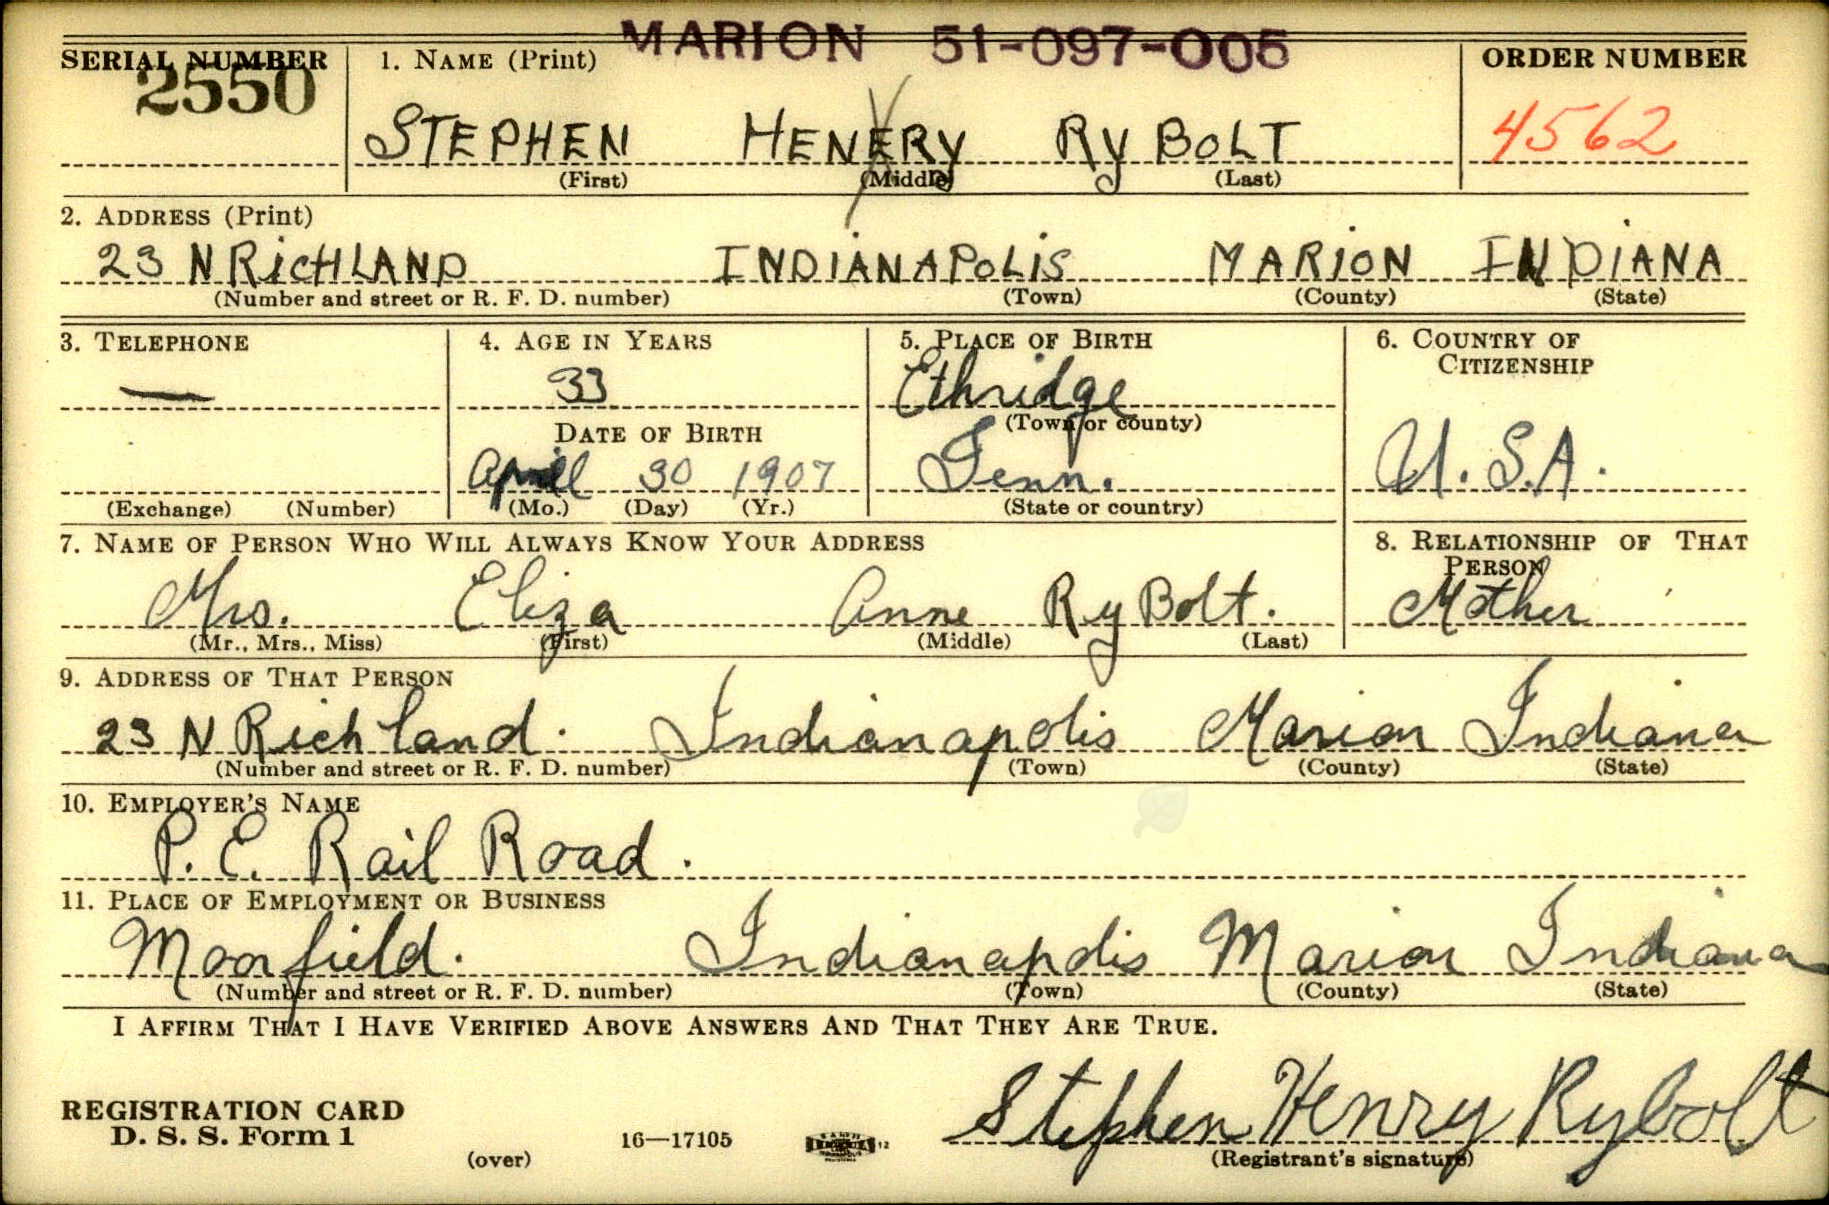 MARION 51-097-005
SERIAL NUMBER 1. NAME (Print) ORDER NUMBER
2550
STEPHEN HENERY RYBOLT 4562
(First) (Middle) (Last)
2. ADDRESS (Print)
23 N RICHLAND INDIANAPOLIS MARION INDIANA
(Number and street or R. F. D. number) (Town) (County) (State)
3. TELEPHONE 4. AGE IN YEARS 5. PLACE OF BIRTH 6. COUNTRY OF
CITIZENSHIP
— 33 Ethridge
(Town or county)
DATE OF BIRTH
April 30 1907 Tenn. U.S.A.
(Exchange) (Number) (Mo.) (Day) (Yr.) (State or country)
7. NAME OF PERSON WHO WILL ALWAYS KNOW YOUR ADDRESS 8. RELATIONSHIP OF THAT
PERSON
Mrs. Eliza Anne RyBolt. Mother
(Mr., Mrs., Miss) (First) (Middle) (Last)
9. ADDRESS OF THAT PERSON
23 N Richland. Indianapolis Marion Indiana
(Number and street or R. F. D. number) (Town) (County) (State)
10. EMPLOYER'S NAME
P. E. Rail Road.
11. PLACE OF EMPLOYMENT OR BUSINESS
Moorfield. Indianapolis Marion Indiana
(Number and street or R. F. D. number) (Town) (County) (State)
I AFFIRM THAT I HAVE VERIFIED ABOVE ANSWERS AND THAT THEY ARE TRUE.
Stephen Henry Rybolt
REGISTRATION CARD
D. S. S. Form 1 16—17105 12
(over) (Registrant's signature)